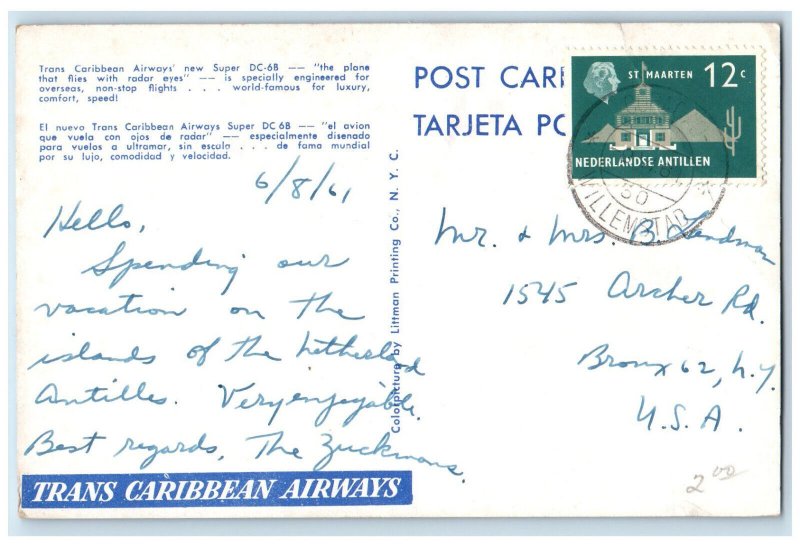 Trans Caribbean Airways' new Super DC-6B –– "the plane
that flies with radar eyes" –– is specially engineered for
overseas, non-stop flights . . . world-famous for luxury,
comfort, speed!
El nuevo Trans Caribbean Airways Super DC 6B –– "el avion
que vuela con ojos de radar" –– especialmente disenado
para vuelos a ultramar, sin escala . . . de fama mundial
por su lujo, comodidad y velocidad.
6/8/61
Hello,
Spending our
vacation on the
islands of the Netherland
Antilles. Very enjoyable.
Best regards, The Zuckmans.
TRANS CARIBBEAN AIRWAYS
Colorpicture by Littman Printing Co., N. Y. C.
POST CAR
TARJETA PO
ST MAARTEN 12 c
NEDERLANDSE ANTILLEN
WILLEMSTAD
Mr. & Mrs. B. Landman
1545 Archer Rd.
Bronx 62, N.Y.
U.S.A.
2.00